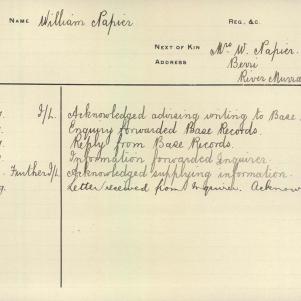 NAME William Napier REG. &C.
NEXT OF KIN Mrs W. Napier.
ADDRESS Berri
River Murra
I/L. Acknowledged advising writing to Base
Enquiry forwarded Base Records.
Reply from Base Records.
Information forwarded Enquirer.
Further I/L. Acknowledged supplying information.
Letter received from Enquirer. Acknow